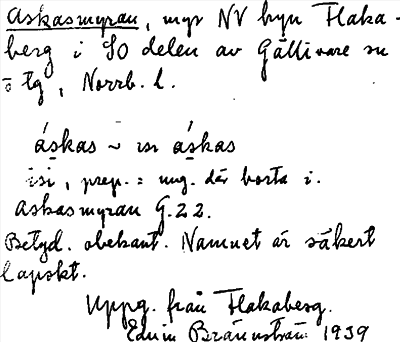 Askasmyran, myr NV byn Flaka-
berg i SO delen av Gällivare sn
o tg, Norrb. l.
áskas ~ ısı áskas
isi, prep. = ung. där borta i.
Askasmyran G.22.
Betyd. obekant. Namnet är säkert
lapskt.
Uppg. från Flakaberg.
Edvin Brännström 1939